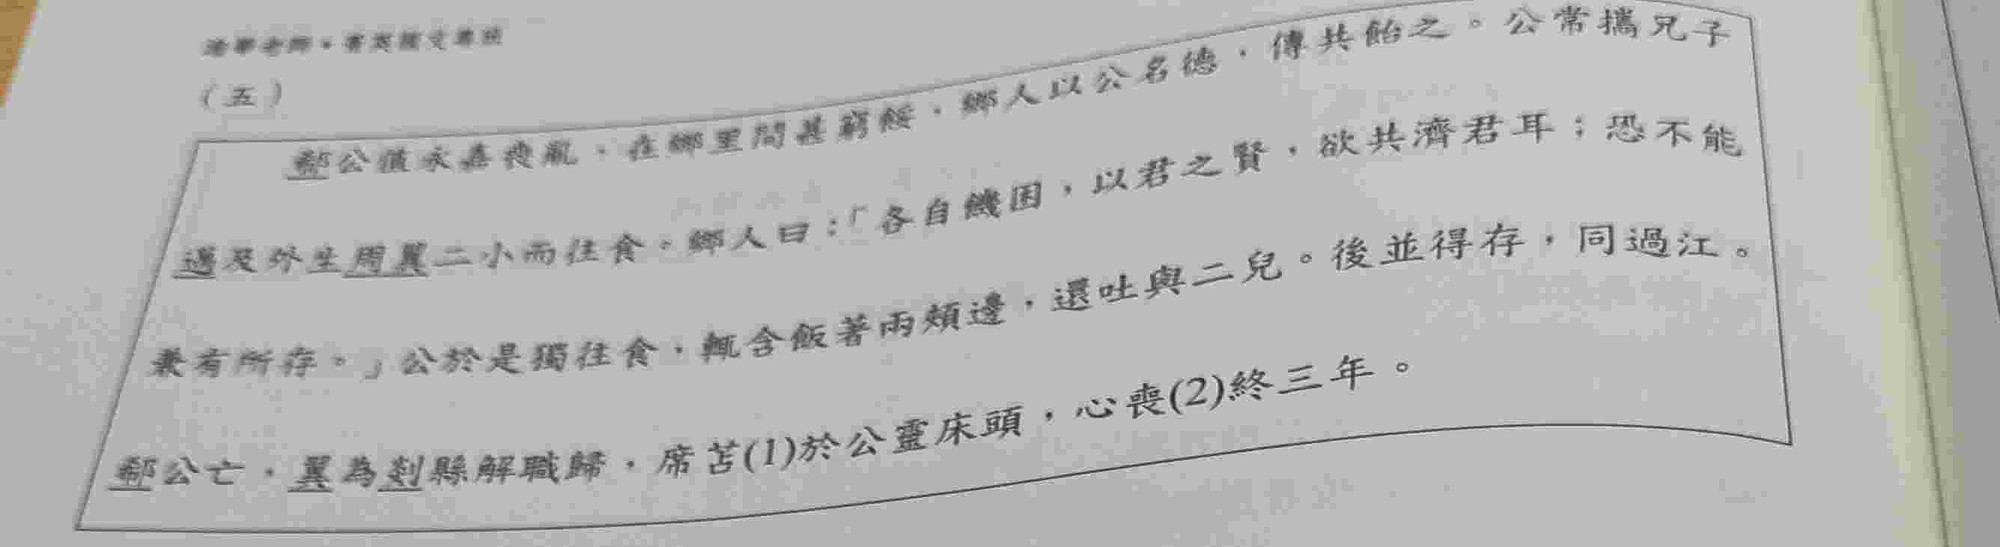 （五）
郗公值永嘉喪亂，在鄉里間甚窮餒，鄉人以公名德，傳共飴之。公常攜兄子
邁及外生周翼二小而往食。鄉人曰：「各自饑困，以君之賢，欲共濟君耳；恐不能
兼有所存。」公於是獨往食，輒含飯著兩頰邊，還吐與二兒。後並得存，同過江。
郗公亡，翼為剡縣解職歸，席苫(1)於公靈床頭，心喪(2)終三年。